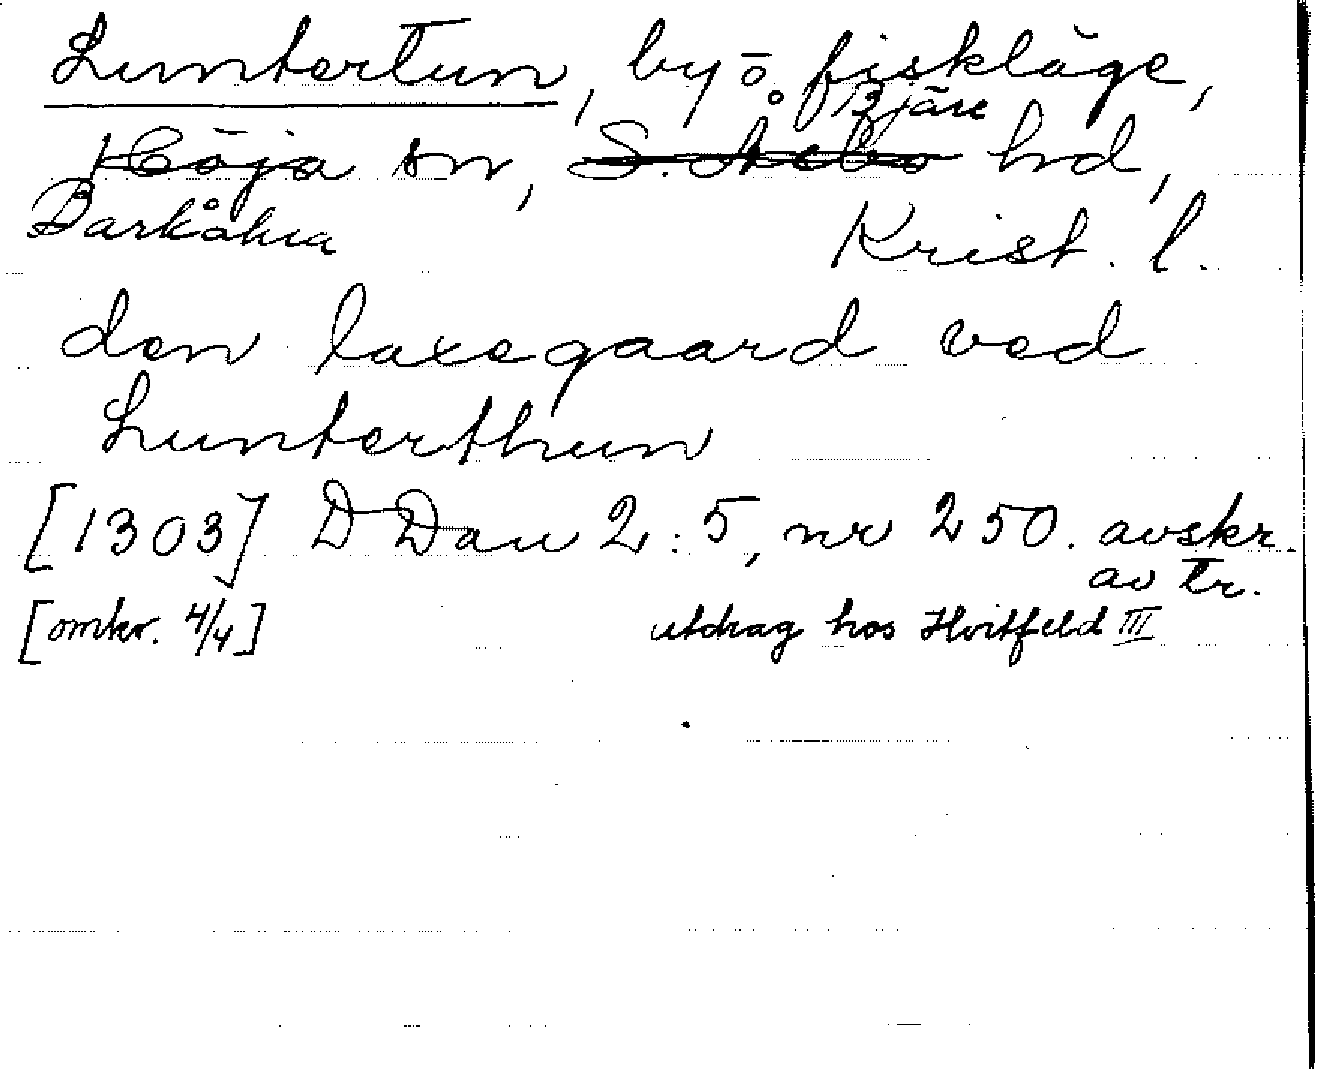 Luntertun, by o. fiskläge,
Bjäre
Höja sn, S. Åsbo hd,
Barkåkra Krist. l.
den laxegaard ved
Lunterthun
[1303] DDan 2:5, nr 250. avskr.
av tr.
[omkr. 4/4] utdrag hos Hvitfeld III